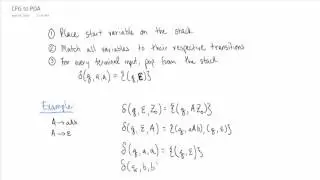 CFG to PDA
① Place start variable on the stack
② Match all variables to their respective transitions
③ For every terminal input, pop from the stack
δ(q,a,a) = {(q,ε)}
Example:
A→aAb
A→ε
δ(q,ε,Z₀) = {(q,AZ₀)}
δ(q,ε,A) = {(q,aAb),(q,ε)}
δ(q,a,a) = {(q,ε)}
δ(q,b,b